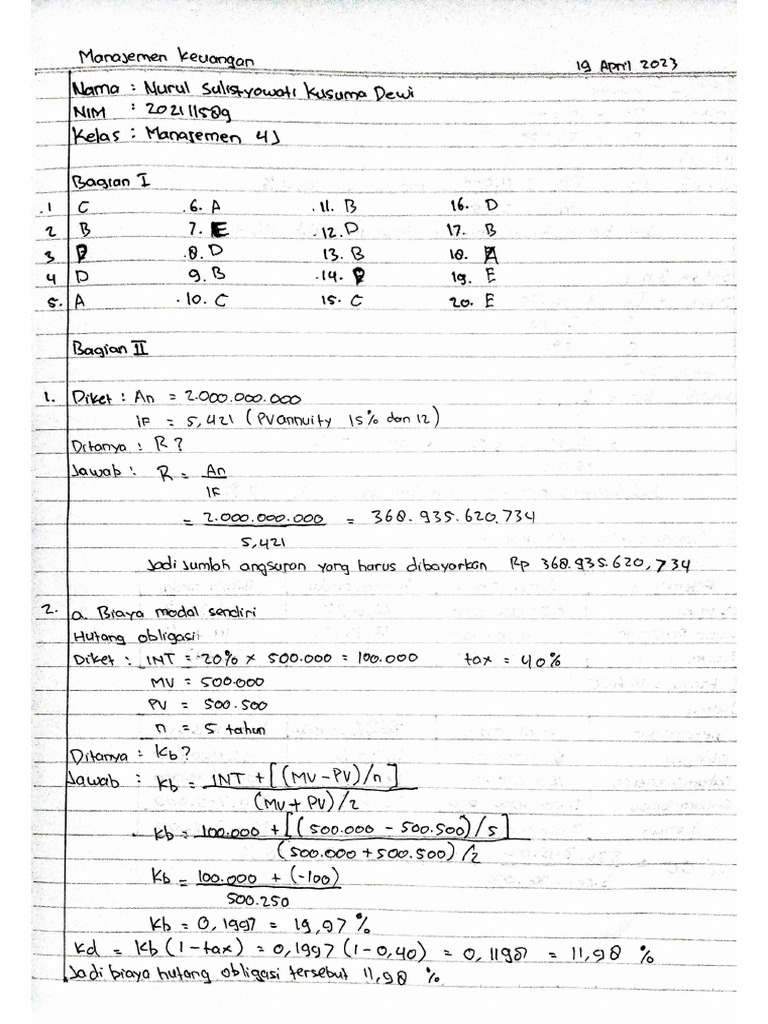 Manajemen Keuangan 19 April 2023
Nama : Nurul Sulistyowati Kusuma Dewi
NIM : 202111589
Kelas : Manajemen 4J
Bagian I
.1 C .6. A .11. B 16. D
2 B 7. E .12. D 17. B
3 D .8. D 13. B 18. A
4 D 9. B .14. D 19. E
5. A .10. C 15. C 20. E
Bagian II
1. Diket : An = 2.000.000.000
IF = 5,421 (PV annuity 15% dan 12)
Ditanya : R ?
Jawab : R = An
IF
= 2.000.000.000 = 368.935.620,734
5,421
Jadi jumlah angsuran yang harus dibayarkan Rp 368.935.620,734
2. a. Biaya modal sendiri
Hutang obligasi
Diket : INT = 20% × 500.000 = 100.000 tax = 40%
MV = 500.000
PV = 500.500
n = 5 tahun
Ditanya : Kb ?
Jawab : Kb = INT + [(MV - PV)/n]
(MV + PV)/2
Kb = 100.000 + [(500.000 - 500.500)/5]
(500.000 + 500.500)/2
Kb = 100.000 + (-100)
500.250
Kb = 0,1997 = 19,97 %
Kd = Kb (1 - tax) = 0,1997 (1 - 0,40) = 0,1198 = 11,98 %
Jadi biaya hutang obligasi tersebut 11,98 %.